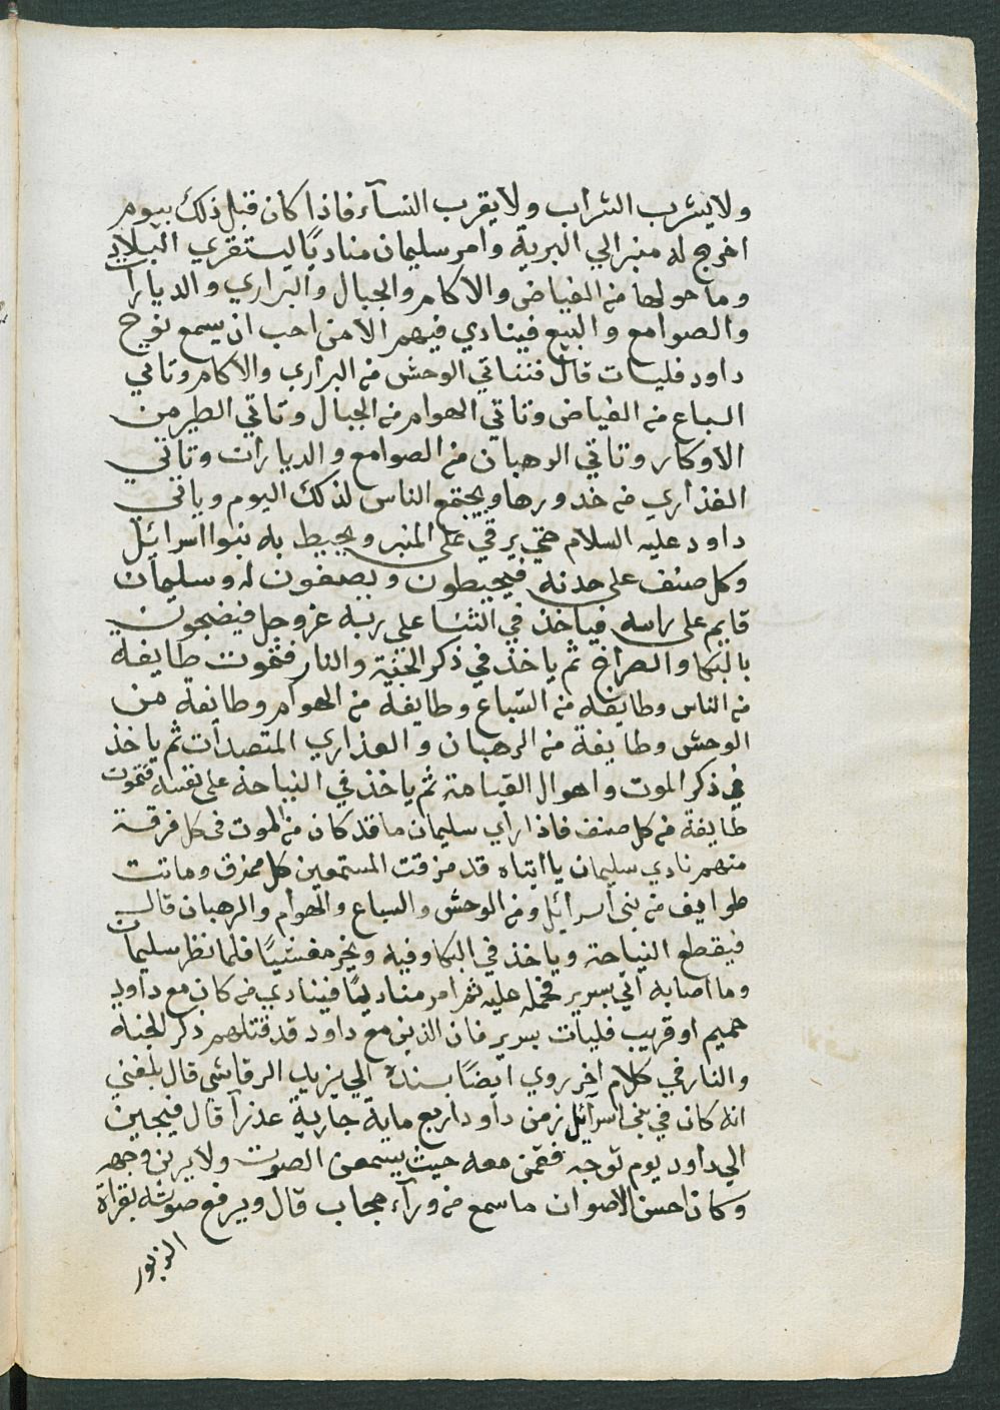 ولا يشرب الشراب ولا يقرب النسآء فاذا كان قبل ذلك بيوم
اخرج له منبر الي البرية وامر سليمان مناديًا يستقري البلاد
وما حولها من الغياض والاكام والجبال والبراري والديارات
والصوامع والبيع فينادي فيهم الا من احب ان يسمع نوح
داود فليات قال فتتاتي الوحش من البراري والاكام وتاتي
السباع من الغياض وتاتي الهوام من الجبال وتاتي الطير من
الاوكار وتاتي الرهبان من الصوامع والديارات وتاتي
العذاري من خدورها ويجتمع الناس لذلك اليوم وياتي
داود عليه السلام حتي يرقي علي المنبر ويحيط به بنوا اسرائيل
وكل صنف علي حدته فيحيطون ويصغون له وسليمان
قايم علي راسه فياخذ في الثنا علي ربه عز وجل فيضجون
بالبكا والصراخ ثم ياخذ في ذكر الجنة والنار فتموت طايفة
من الناس وطايفة من السباع وطايفة من الهوام وطايفة من
الوحش وطايفة من الرهبان والعذاري المتعبدات ثم ياخذ
في ذكر الموت واهوال القيامة ثم ياخذ في النياحة علي نفسه فتموت
طايفة من كل صنف فاذا راي سليمان ما قد كان من الموت في كل فرقة
منهم نادي سليمان يا ابتاه قد مزقت المستمعين كل ممزق وماتت
طوايف من بني اسرائيل ومن الوحش والسباع والهوام والرهبان قال
فيقطع النياحة وياخذ في البكا وفيه ويخر مغشيًا فلما نظر سليمان
وما اصابه اتي بسرير فحمله عليه ثم امر مناديًا فينادي من كان مع داود
حميم او قريب فليات بسرير فان الذين مع داود قد قتلهم ذكر الجنة
والنار في كلام اخر روي ايضًا بسنده الي يزيد الرقاشي قال بلغني
انه كان في بني اسرآئيل زمن داود اربع ماية جارية عذرآ قال فيجين
الي داود يوم نوحه فقمن معه حيث يسمعن الصوت ولا يرين وجهه
وكان احسن الاصوات ما سمع من ورآء حجاب قال ويرفع صوته بقراة
الزبور